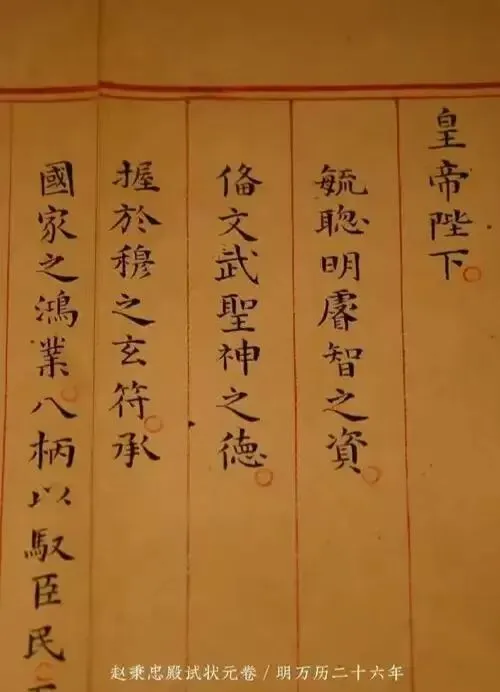 皇帝陛下
毓聰明睿智之資
俻文武聖神之德
握於穆之玄符承
國家之鴻業八柄以馭臣民
赵秉忠殿试状元卷/明万历二十六年